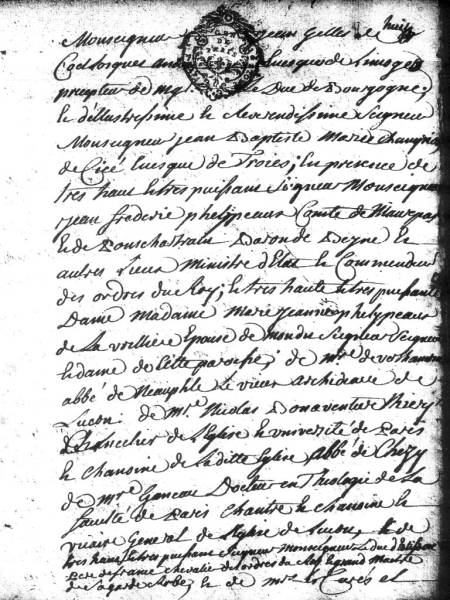 Monseigneur Jean Gilles de
Coetlosquet ancien Evesque de Limoges
precepteur de mgr. le Duc de Bourgogne;
et d'illustrissime et Reverendissime Seigneur
Monseigneur jean Baptiste Marie Champion
de Cicé Evesque de Troies; En presence de
tres haut et tres puissant Seigneur Monseigneur
jean frederic phelypeaux Comte de Maurepas
et de Pontchartrain Baron de Beyne et
autres Lieux Ministre d'Etat et Commandeur
des ordres du Roy; et tres haute et tres puissante
Dame Madame Marie jeanne phelypeaux
de La vrilliere Epouse de mondit Seigneur Seigneur
et dame de Cette paroisse; de mre. de verthamon
abbé de Neauphle Le vieux archidiacre de
Luçon. de Mre. Nicolas Bonaventure Thiery
Chancelier de l'Eglise et université de Paris
et chanoine de Laditte Eglise abbé de Chezy
de mre. Ganeau Docteur en Theologie de La
faculté de Paris chantre et chanoine et
vicaire General de l'Eglise de Luçon, et de
tres haut et tres puissant Seigneur monseigneur Le duc d'Estissac
Pair de france chevalier des ordres du Roy et grand Maitre
de La garde Robe, et de mrs. les Curés et